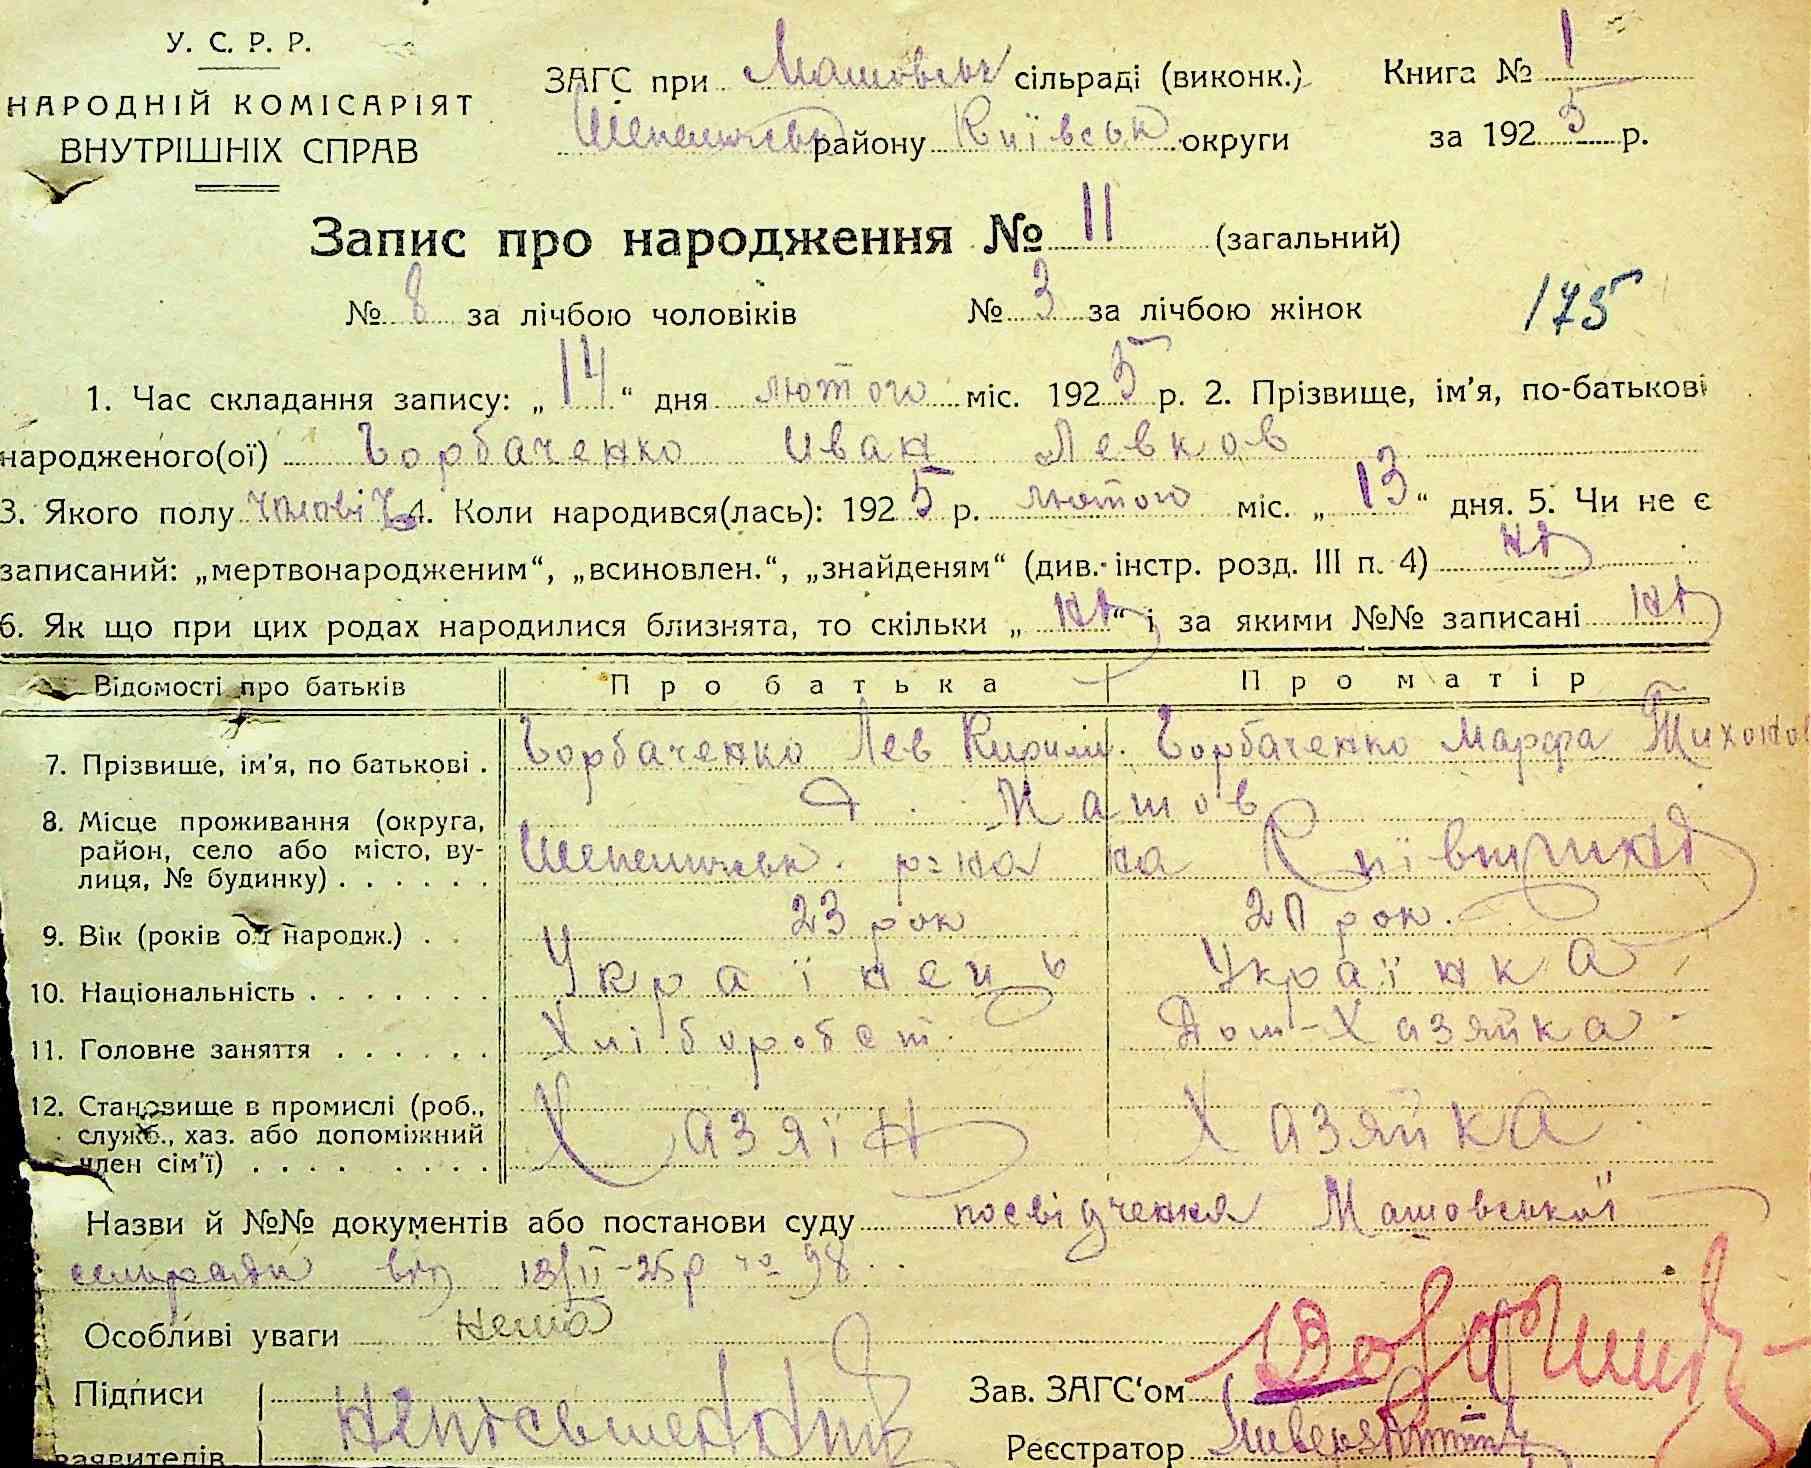 У. С. Р. Р.
НАРОДНІЙ КОМІСАРІЯТ
ВНУТРІШНІХ СПРАВ
ЗАГС при Машовськ сільраді (виконк.)
Шепелическ району Київськ округи
Книга № 1
за 1925 р.
Запис про народження № 11 (загальний)
№ 8 за лічбою чоловіків № 3 за лічбою жінок
175
1. Час складання запису: „14“ дня лютого міс. 1925 р. 2. Прізвище, ім'я, по-батькові
народженого(ої) Горбаченко Иван Левков
3. Якого полу чоловіч 4. Коли народився(лась): 1925 р. лютого міс. „13“ дня. 5. Чи не є
записаний: „мертвонародженим“, „всиновлен.“, „знайденям“ (див. інстр. розд. III п. 4) ні
6. Як що при цих родах народилися близнята, то скільки „ні“ і за якими №№ записані ні
Відомості про батьків Про батька Про матір
7. Прізвище, ім'я, по батькові . Горбаченко Лев Кирил. Горбаченко Марфа Тихонов
8. Місце проживання (округа, район, село або місто, ву-лиця, № будинку) . . . . . . Машов
Шепелическ. р-на на Київщині
9. Вік (років од народж.) . . 23 рок 20 рок.
10. Національність . . . . . . . Українець Українка
11. Головне заняття . . . . . . Хліборобст. Дом-Хазяйка
12. Становище в промислі (роб., служб., хаз. або допоміжний член сім'ї) . . . . . . . . Хазяїн Хазяйка
Назви й №№ документів або постанови суду посвідчення Машовської
сельради від 13/II-25р № 98
Особливі уваги нема
Підписи
заявителів
Неписьменний
Зав. ЗАГС'ом
Реєстратор